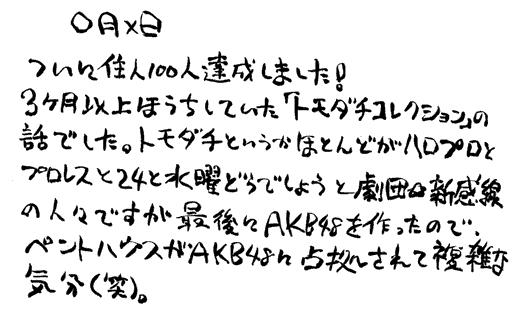 ○月×日
ついに住人100人達成しました!
3ケ月以上ほうちしていた「トモダチコレクション」の
話でした。トモダチというかほとんどがハロプロと
プロレスと24と水曜どうでしょうと劇団☆新感線
の人々ですが最後にAKB48を作ったので、
ペントハウスがAKB48に占拠されて複雑な
気分(笑)。